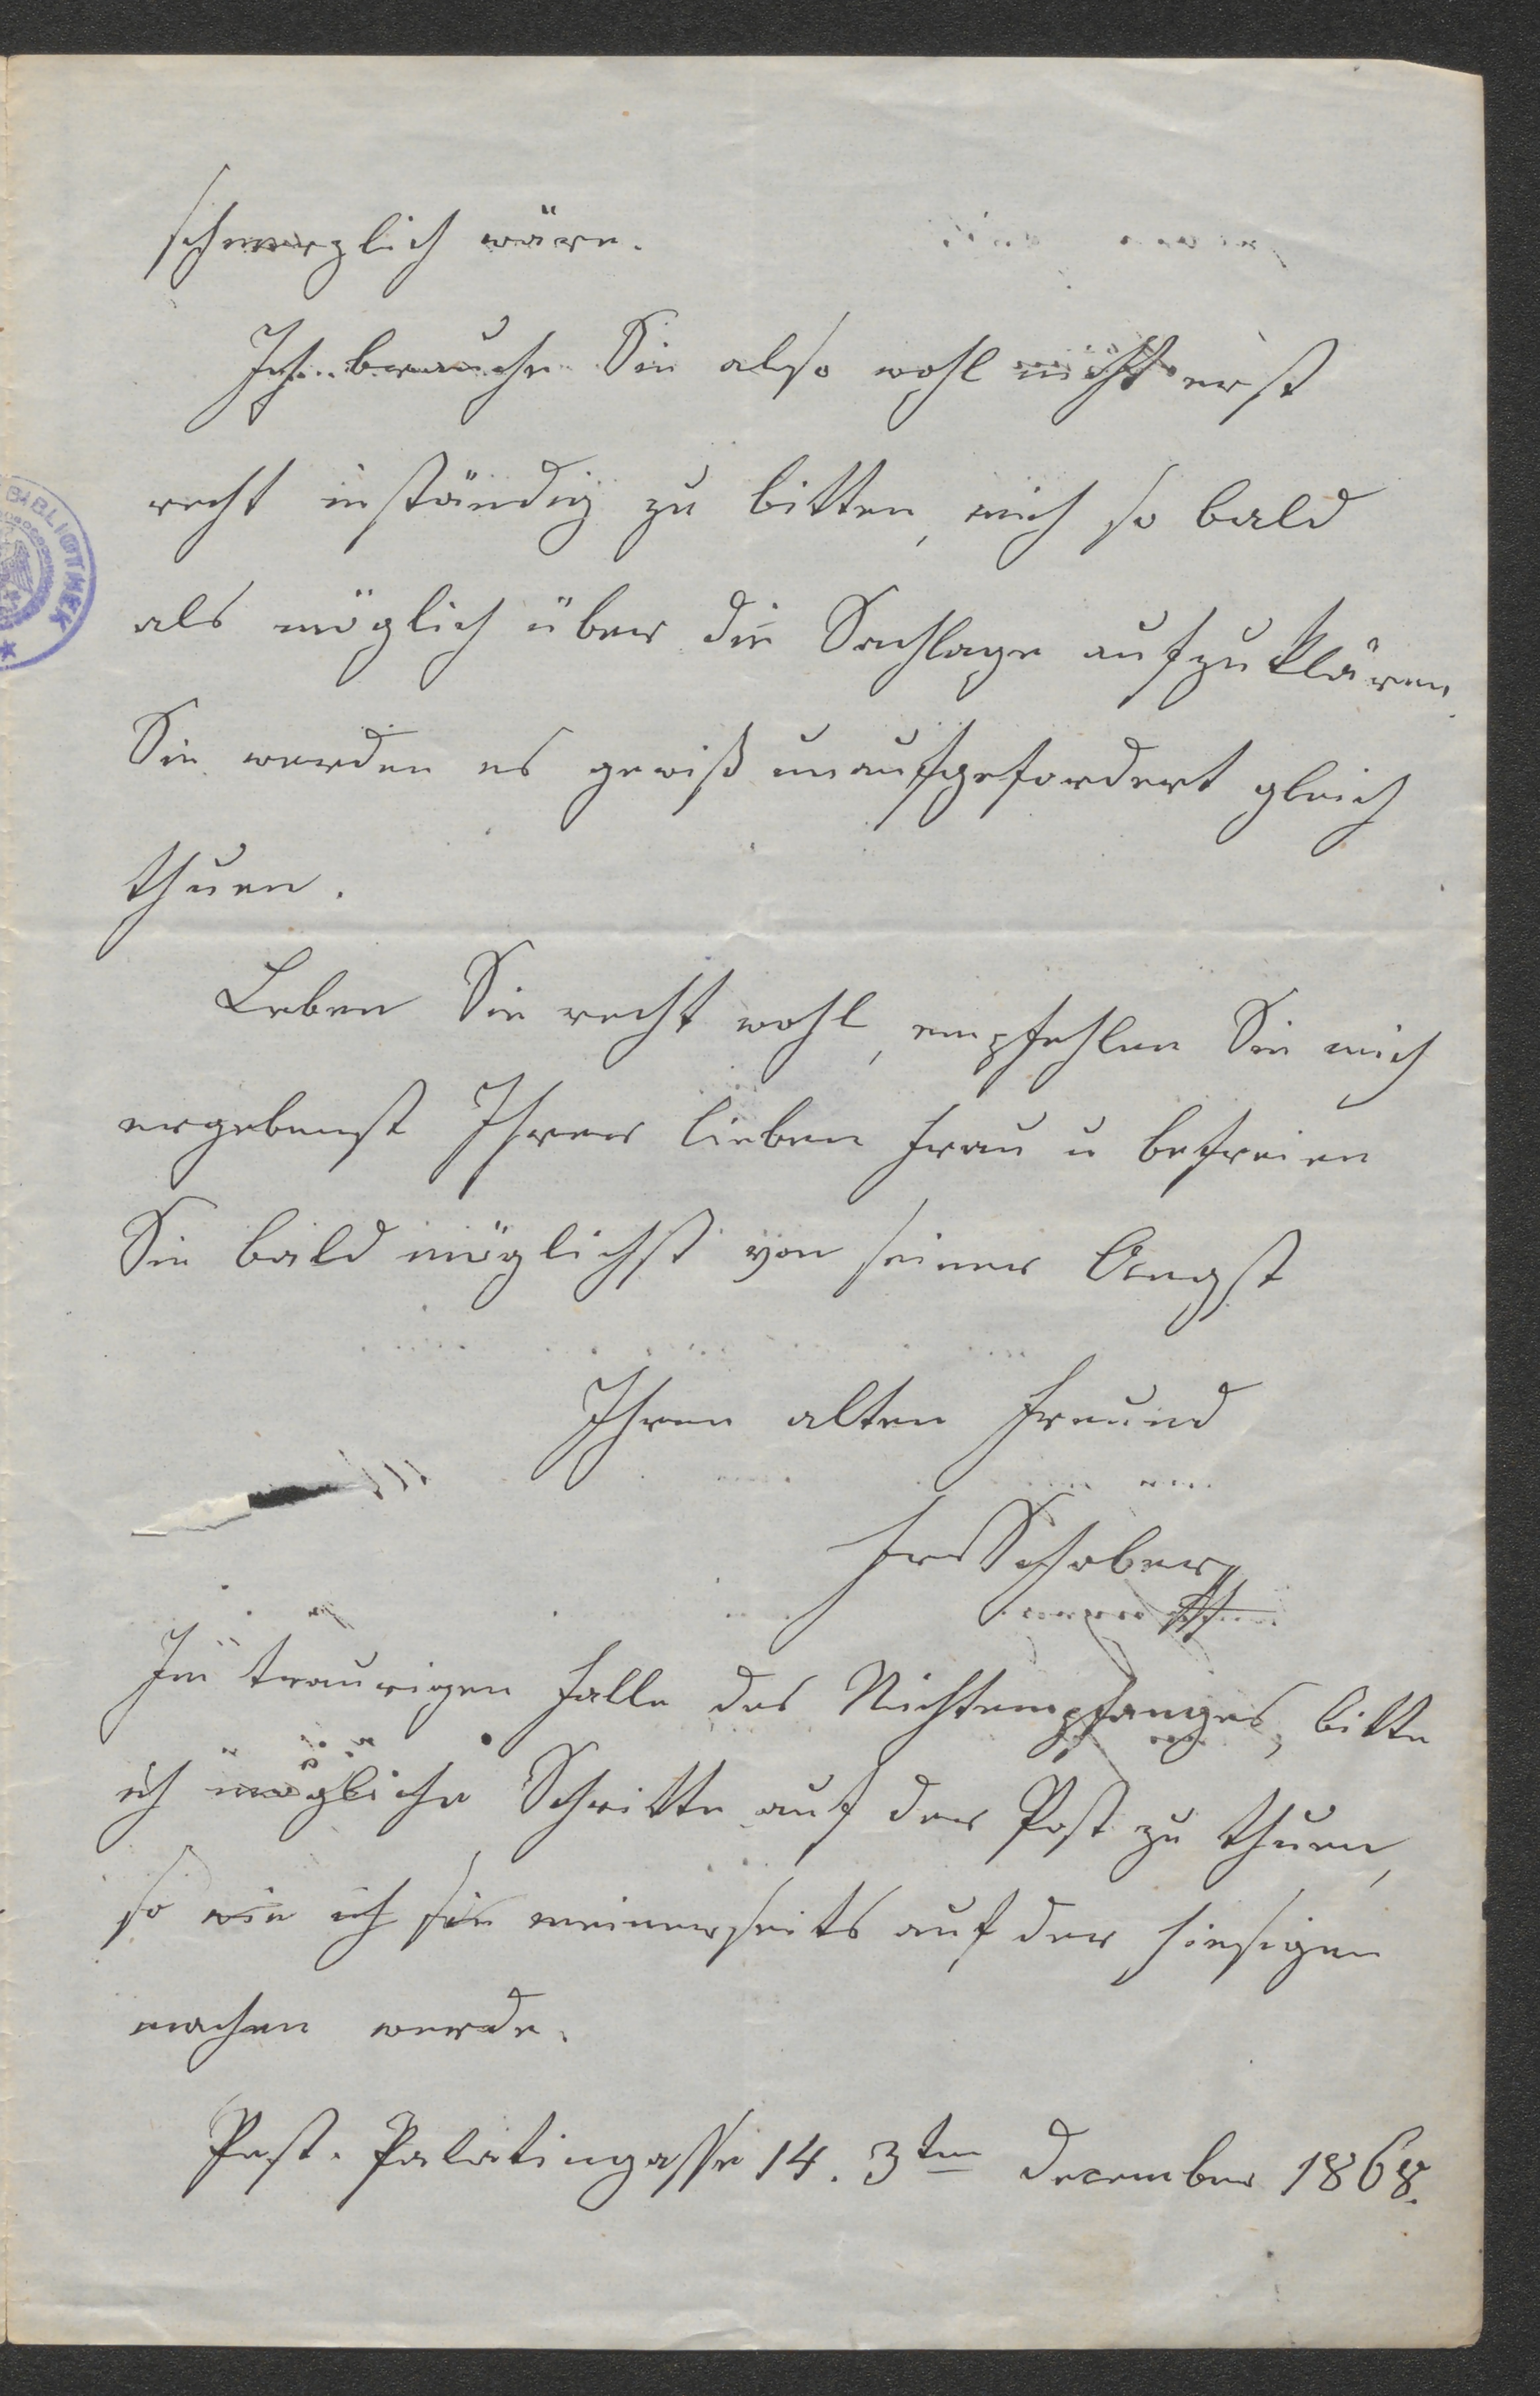 schmerzlich wäre.
Ich brauche Sie also wohl nicht erst
recht inständig zu bitten, mich so bald
als möglich über die Sachlage aufzuklären,
Sie werden es gewiß unaufgefordert gleich
thuen.
Leben Sie recht wohl, empfehlen Sie mich
ergebenst Ihrer lieben Frau u befreien
Sie bald möglichst von seiner Angst
Ihren alten Freund
Fr Schober
Im traurigen Falle des Nichtempfanges, bitte
ich mögliche Schritte auf der Post zu thuen,
so wie ich sie meinerseits auf der hiesigen
machen werde.
Pest. Palatingasse 14. 3ten December 1868.
BIBLIOTHEK